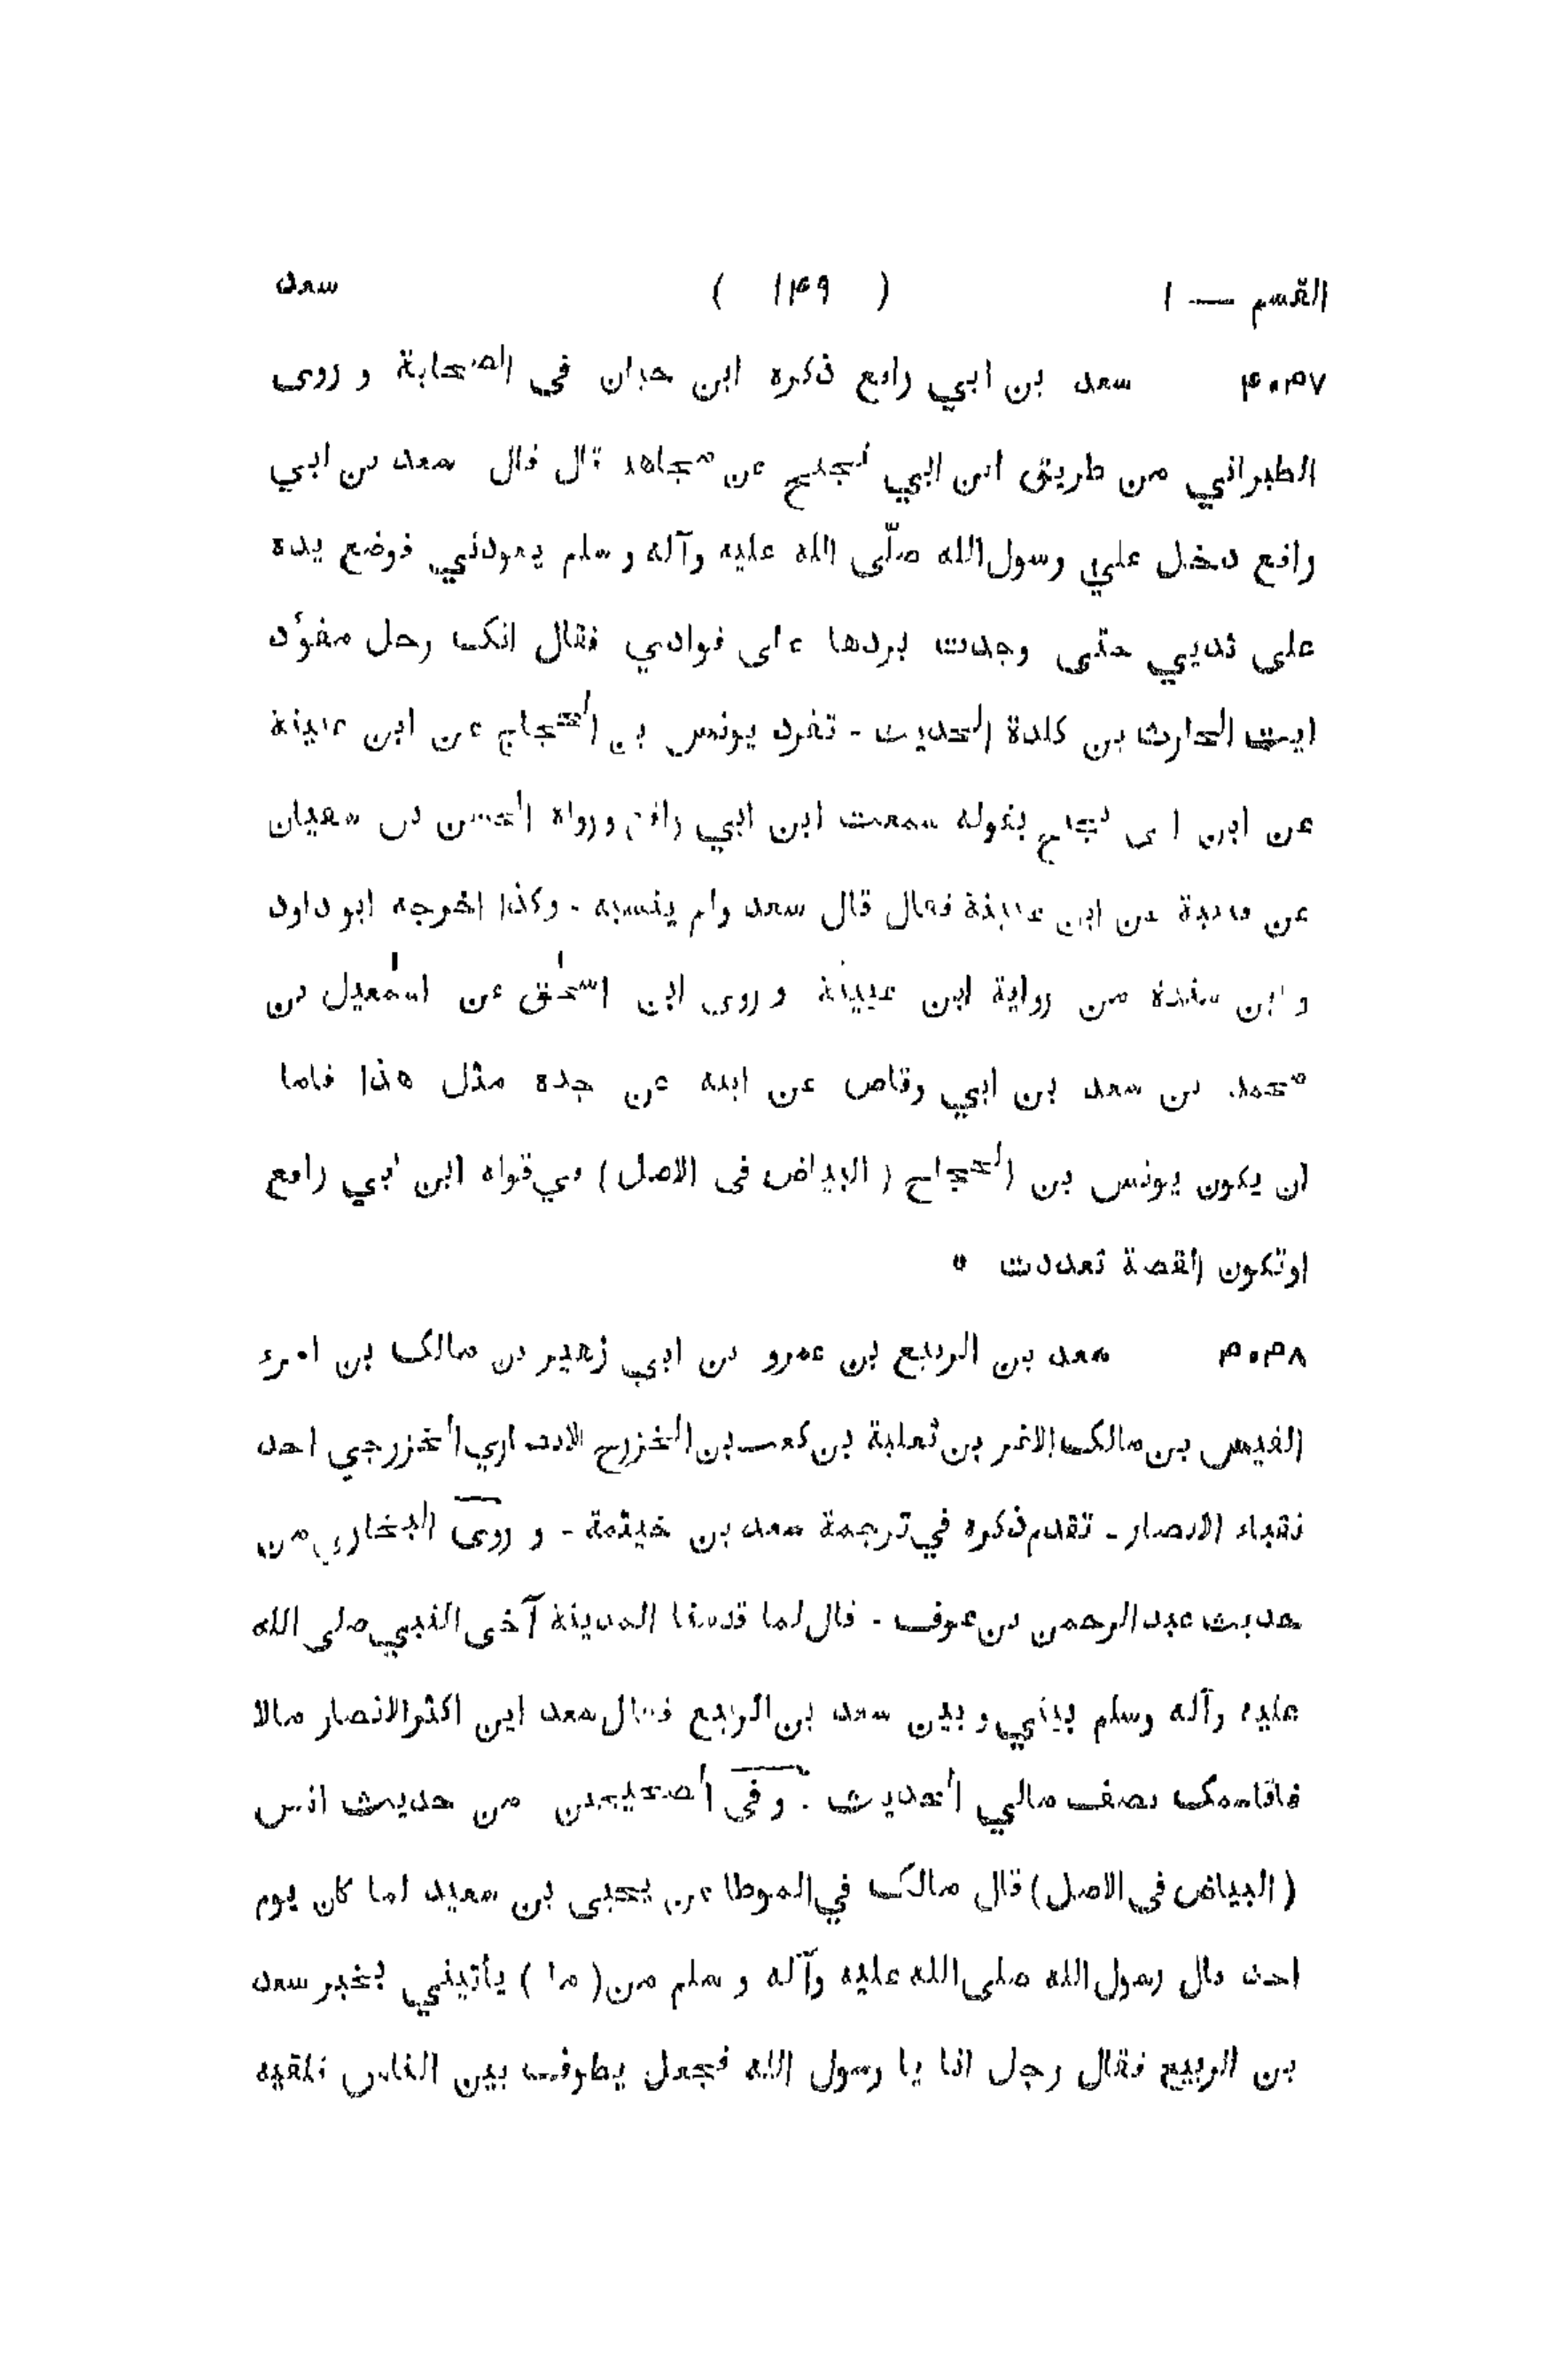 القسم — ١ ( ١٤٩ ) سعد
٤٠٣٧ سعد بن ابي رافع ذكره ابن حبان في الصحابة و روى
الطبراني من طريق ابن ابي نجيح عن مجاهد قال قال سعد بن ابي
رافع دخل علي رسول الله صلّى الله عليه وآله وسلم يعودني فوضع يده
على ثديي حتى وجدت بردها على فوادي فقال انك رجل مفوٌد
ايت الحارث بن كلدة الحديث - تفرد يونس بن الحجاج عن ابن عيينة
عن ابن ابي نجيح بقوله سعد ابن ابي رافع ورواه الحسن بن سفيان
عن قتيبة عن ابن عيينة فقال قال سعد ولم ينسبه - وكذا اخرجه ابو داود
وابن مندة من رواية ابن عيينة و روى ابن اسحٰق عن اسمٰعيل بن
محمد بن سعد بن ابي وقاص عن ابيه عن جده مثل هذا فاما
ان يكون يونس بن الحجاج ( البياض في الاصل ) في قوله ابن ابي رافع
اوتكون القصة تعددت *
٤٠٣٨ سعد بن الربيع بن عمرو بن ابي زهير بن مالك بن امرء
القيس بن مالك الاغر بن ثعلبة بن كعب بن الخزرج الانصاري الخزرجي احد
نقباء الانصار - تقدم ذكره في ترجمة سعد بن خيثمة - و روى البخاري من
حديث عبد الرحمن بن عوف - قال لما قدمنا المدينة آخى النبي صلى الله
عليه وآله وسلم بيني و بين سعد بن الربيع فقال سعد اين اكثر الانصار مالا
فاقاسمك نصف مالي الحديث - وفى الصحيحين من حديث انس
( البياض في الاصل ) قال مالك في الموطا عن يحيى بن سعيد لما كان يوم
احد قال رسول الله صلى الله عليه وآله وسلم من ( ما ) يأتيني بخبر سعد
بن الربيع فقال رجل انا يا رسول الله فجعل يطوف بين الناس فلقيه